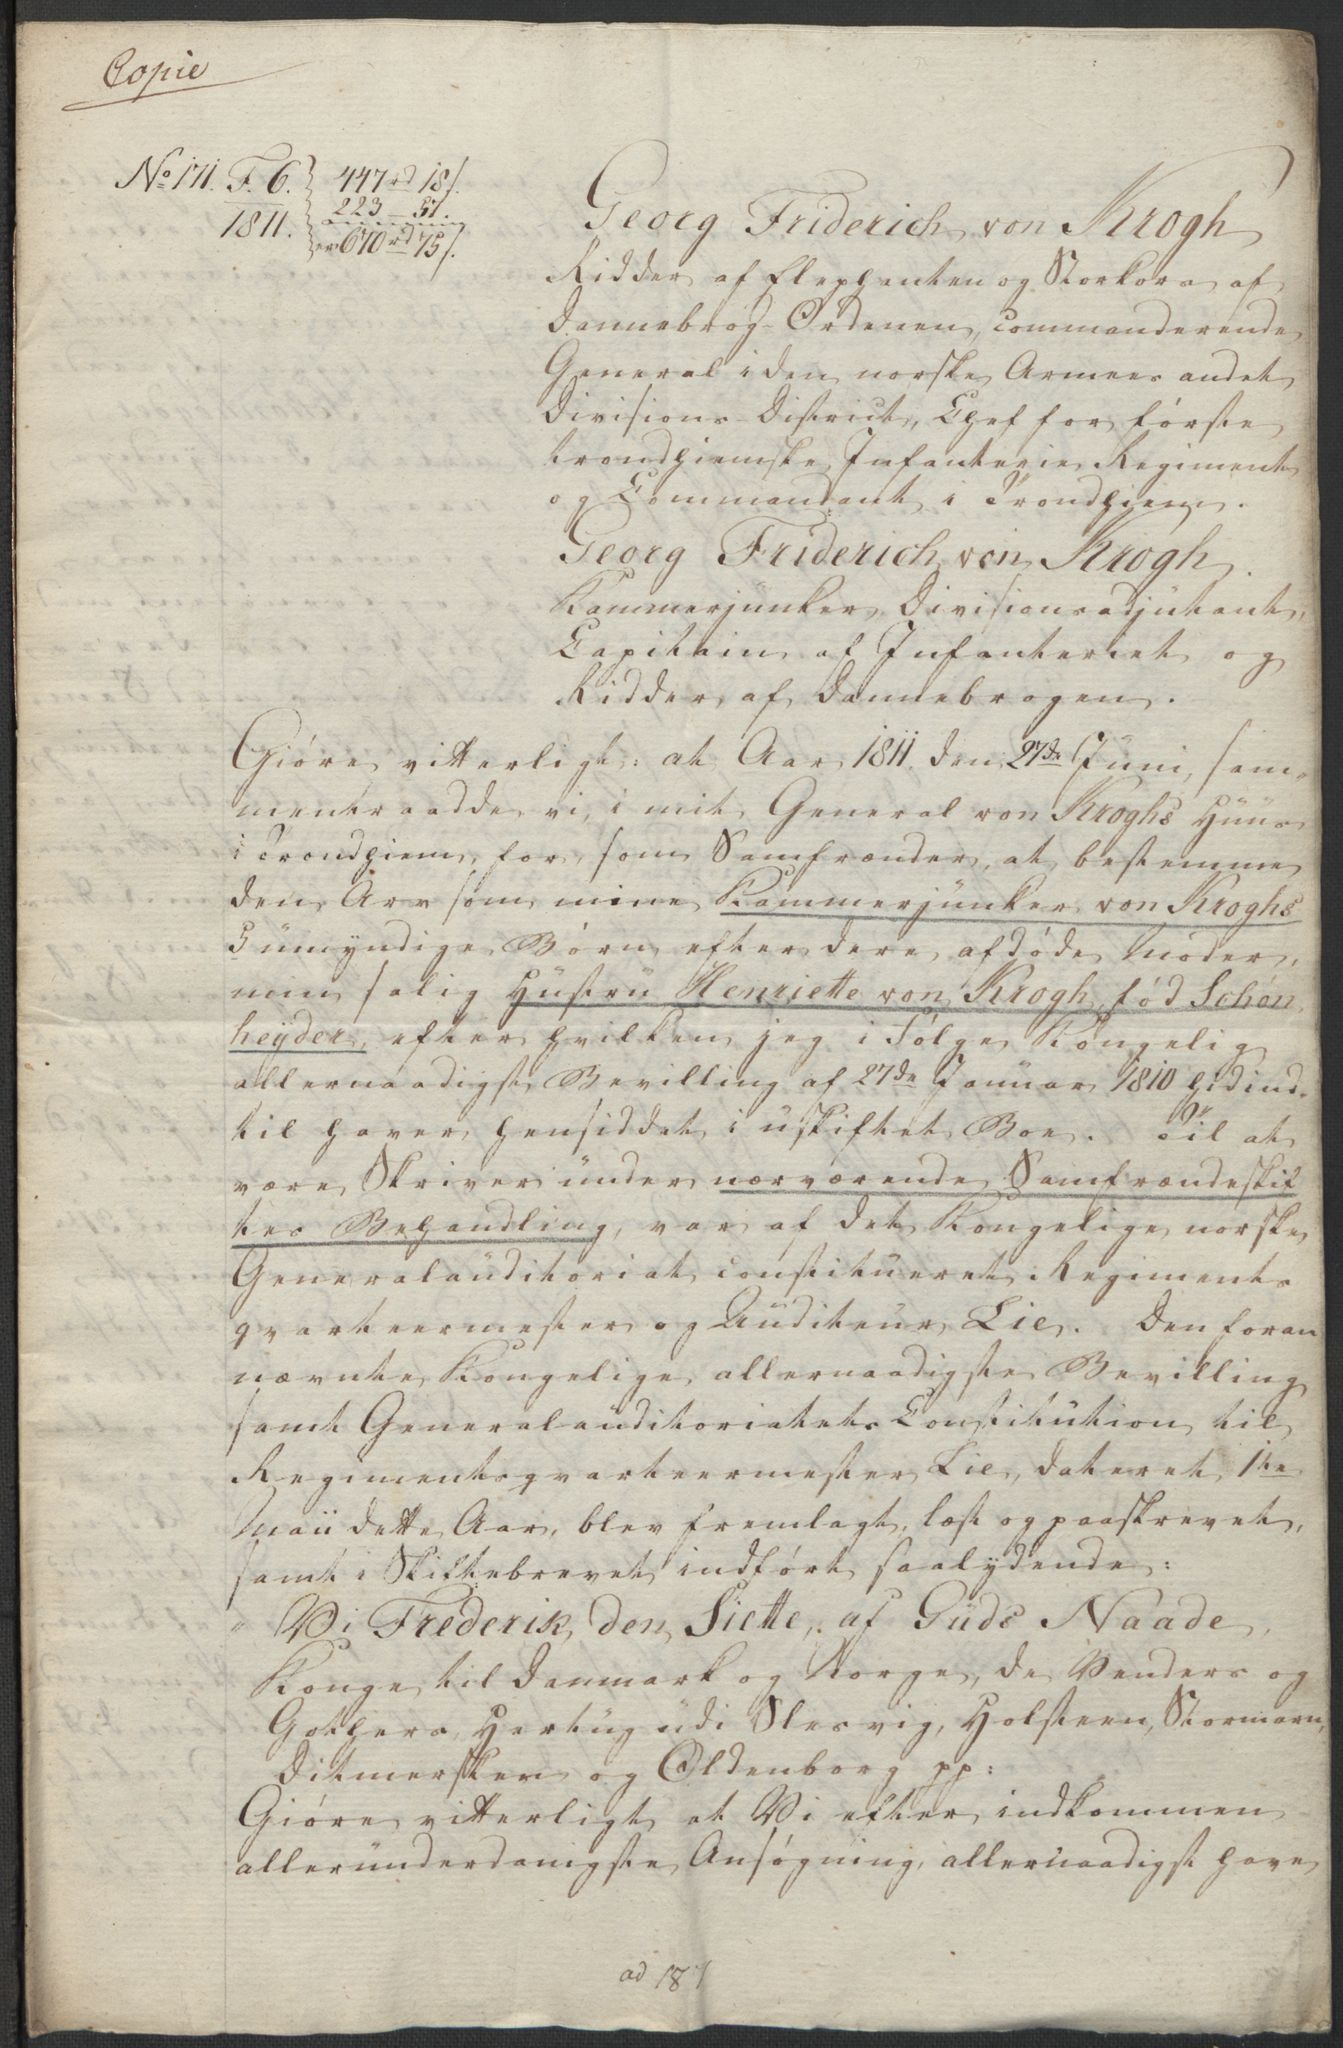 Copie
No 171. F. 6. 447 rd 18 s.
1811. 223 – 57.
er 670 rd 75 s.
Georg Friderich von Krogh
Ridder af Elephanten og Storkors af
Dannebrog-Ordenen, commanderende
General i den norske Armees andet
Divisions-District, Chef for förste
trondhiemske Infanterie Regiment
og Commandant i Trondhiem.
Georg Friderich von Krogh.
Kammerjunker, Divisionsadjutant,
Capitain af Infanteriet og
Ridder af Dannebrogen.
Giöre vitterligt: at Aar 1811. den 27de Juni, sam-
mentraadde vi, i mit General von Kroghs Huus
i Trondhiem, for, som Samfrænder, at bestemme
den Arv som mine Kammerjunker von Kroghs
5 umyndige Börn efter deres afdöde Moder,
min salig Hustru Henriette von Krogh, född Schön
heyder, efter hvilken jeg i Fölge Kongelig
allernaadigst Bevilling af 27de Januar 1810 hidind-
til haver hensiddet i uskiftet Boe. Til at
være Skriver under nærværende Samfrændeskif
tes Behandling, var af det Kongelige norske
Generalauditoriat constitueret Regiments
qvarteermester og Auditeur Lie. Den foran
nævnte Kongelige allernaadigste Bevilling
samt Generalauditoriatets Constitution til
Regimentsqvarteermester Lie, dateret 1te
Maii dette Aar, blev fremlagt, læst og paaskrevet,
samt i Skiftebrevet indfört saalydende:
" Vi Frederik den Siette, af Guds Naade,
Konge til Danmark og Norge, de Venders og
Gothers, Hertug udi Slesvig, Holsteen, Stormarn,
Ditmersken og Oldenborg pp:
Giöre vitterligt at Vi efter indkommen
allerunderdanigste Ansögning, allernaadigst have
ad 187